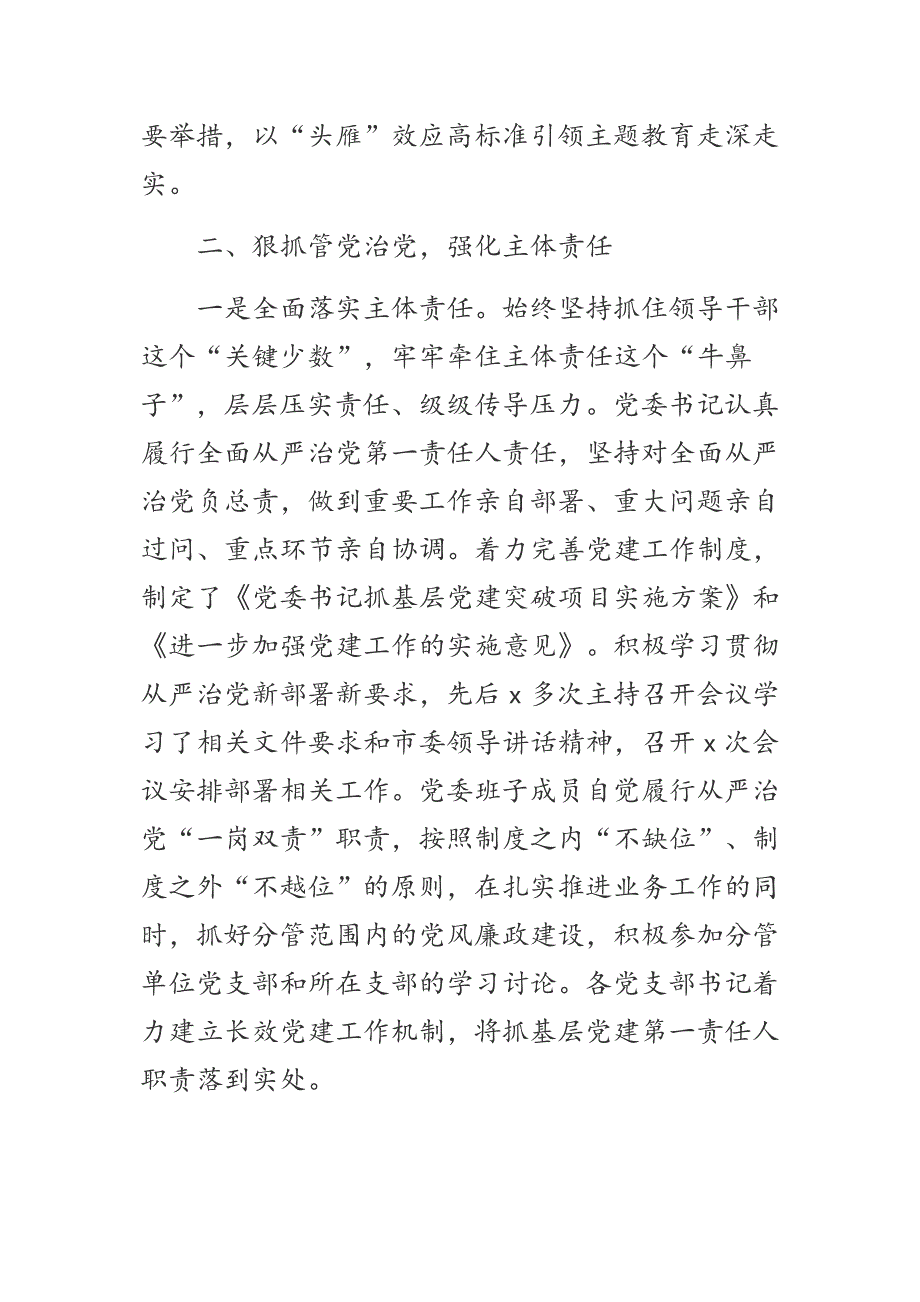 要举措，以“头雁”效应高标准引领主题教育走深走
实。
二、狠抓管党治党，强化主体责任
一是全面落实主体责任。始终坚持抓住领导干部
这个“关键少数”，牢牢牵住主体责任这个“牛鼻
子”，层层压实责任、级级传导压力。党委书记认真
履行全面从严治党第一责任人责任，坚持对全面从严
治党负总责，做到重要工作亲自部署、重大问题亲自
过问、重点环节亲自协调。着力完善党建工作制度，
制定了《党委书记抓基层党建突破项目实施方案》和
《进一步加强党建工作的实施意见》。积极学习贯彻
从严治党新部署新要求，先后x多次主持召开会议学
习了相关文件要求和市委领导讲话精神，召开x次会
议安排部署相关工作。党委班子成员自觉履行从严治
党“一岗双责”职责，按照制度之内“不缺位”、制
度之外“不越位”的原则，在扎实推进业务工作的同
时，抓好分管范围内的党风廉政建设，积极参加分管
单位党支部和所在支部的学习讨论。各党支部书记着
力建立长效党建工作机制，将抓基层党建第一责任人
职责落到实处。